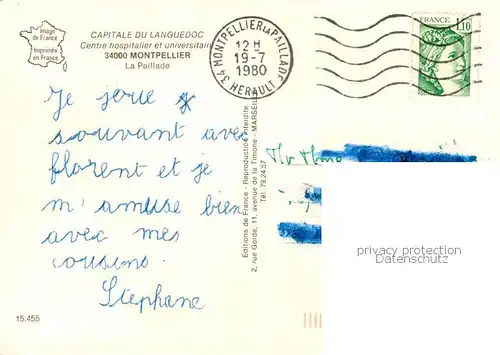 Image
de France
Imprimée
en France
CAPITALE DU LANGUEDOC
Centre hospitalier et universitaire
34000 MONTPELLIER
La Paillade
34 MONTPELLIER LA PAILLADE
12 H
19-7
1980
HERAULT
FRANCE
1,10
Je joue
souvant avec
florent et je
m'amuse bien
avec mes
cousins.
Stephane
Editions de France - Reproduction interdite.
2, rue Gorde, 11, avenue de la Timone - MARSEIL
Tél. 79.24.57
Mr Mme
privacy protection
Datenschutz
15.455